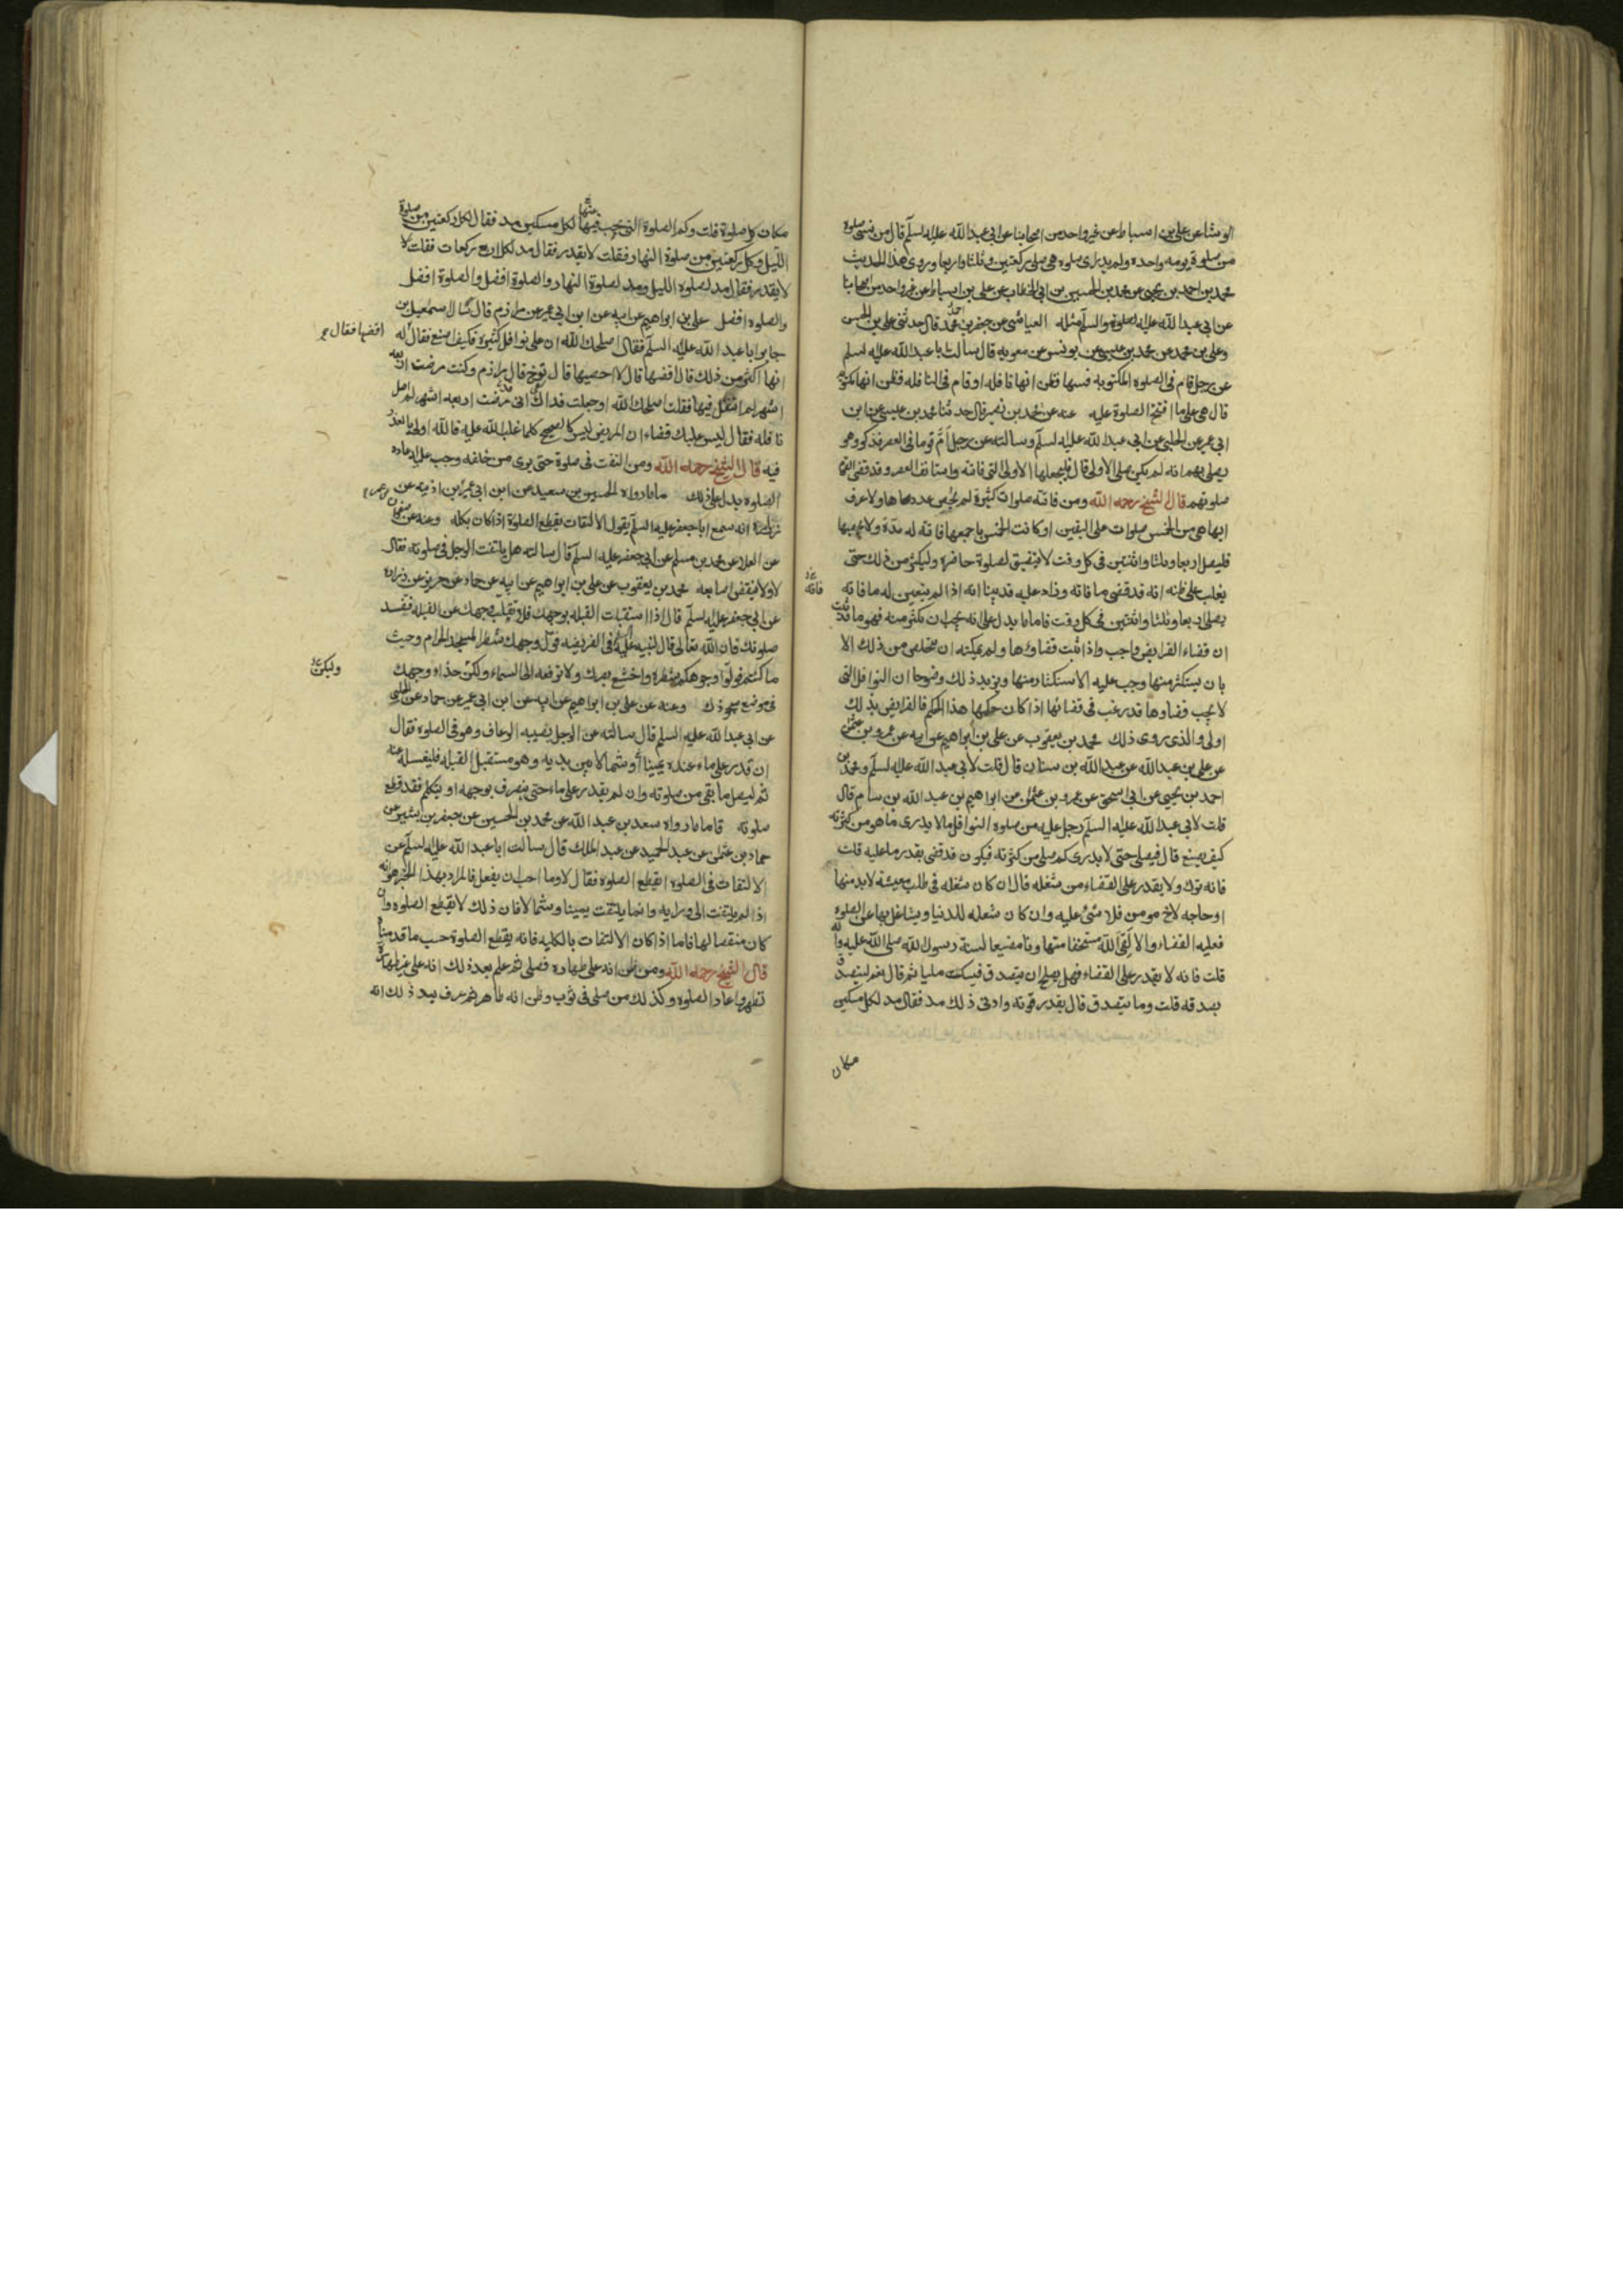 الوشا عن علي بن اسباط عن غير واحد من اصحابنا عن ابي عبد الله عليه السلم قال من نسي صلوه
من صلوة يومه واحده ولم يدر اى صلوه هى صلى ركعتين وثلثا واربعا وروى هذا الحديث
محمد بن احمد بن يحيى عن محمد بن الحسين بن ابي الخطاب عن علي بن اسباط عن غير واحد من اصحابنا
عن ابي عبد الله عليه الصلوة والسلم مثله العياشى عن جعفر بن احمد قال حدثنى على بن الحسن
وعلى بن محمد عن محمد بن عيسى عن يونس عن معويه قال سالت ابا عبد الله عليه السلم
عن رجل قام فى الصلوه المكتوبه فسها فظن انها نافله او قام فى النافله فظن انها مكتوبه
قال هى على ما افتتح الصلوة عليه عنه عن محمد بن نصير قال حدثنا محمد بن عيسى عن ابن
ابي عمير عن الحلبى عن ابي عبد الله عليه السلم وسالته عن رجل أمّ قوما فى العصر فذكر وهو
يصلى بهم انه لم يكن صلى الاولى قال فليجعلها الاولى التى فاتته واستانف العصر وقد قضى القوم
صلوتهم قال الشيخ رحمه الله ومن فاتته صلوات كثيرة لم يحص عددها ولا عرف
ايها هى من الخمس صلوات على اليقين او كانت الخمس باجمعها فاتته له مدة ولا يحصيها
فليصل اربعا وثلثا واثنتين فى كل وقت لا يتضيق لصلوة حاضره وليكثر من ذلك حتى
يغلب على ظنه انه قد قضى ما فاته وزاد عليه قد بينا انه اذا لم يتعين له ما فاته
يصلى اربعا وثلثا واثنتين فى كل وقت فاما ما يدل على انه يجب ان يكثر منه فهو ما قد ثبت
ان قضاء الفرايض واجب واذا ثبت قضاؤها ولم يمكنه ان يتخلص من ذلك الا
بان يستكثر منها وجب عليه الاستكثار منها ويزيد ذلك وضوحا ان النوافل التى
لا يجب قضاوها قد رغب فى قضائها اذا كان حكمها هذا الحكم فالفرايض بذلك
اولى والذى روى ذلك محمد بن يعقوب عن على بن ابراهيم عن ابيه عن عمرو بن عثمن
عن على بن عبد الله عن عبد الله بن سنان قال قلت لأبى عبد الله عليه السلم ومحمد بن
احمد بن يحيى عن ابى اسحق عن عمرو بن عثمن عن ابراهيم بن عبد الله بن سام قال
قلت لابى عبد الله عليه السلم رجل عليه من صلوه النوافل ما لا يدرى ما هو من كثرته
كيف يصنع قال فيصلى حتى لا يدرى كم صلى من كثرته فيكون قد قضى بقدر ما عليه قلت
فانه ترك ولا يقدر على القضاء من شغله قال ان كان شغله فى طلب معيشة لا بد منها
او حاجه لاخ مومن فلا شئ عليه وان كان شغله للدنيا ويشاغل بها عن الصلوه
فعليه القضاء والا لقى الله مستخفا متهاونا مضيعا لسنة رسول الله صلى الله عليه واله
قلت فانه لا يقدر على القضاء فهل يصلح ان يتصدق فيسكت مليا ثم قال نعم ليتصدق
بصدقه قلت وما يتصدق قال بقدر قوته وادنى ذلك مد فقال مد لكل مسكين
مكان
مكان كل صلوة قلت وكم الصلوة التى يجب فيها منها لكل مسكين مد فقال لكل ركعتين من صلوة
الليل وكل ركعتين من صلوة النهار فقلت لا يقدر فقال مد لكل اربع ركعات فقلت لا
لا يقدر فقال مد لصلوه الليل ومد لصلوة النهار والصلوة افضل والصلوة افضل
والصلوه افضل على بن ابراهيم عن ابيه عن ابن ابى عمير عن مرازم قال سال اسمعيل بن
جابر ابا عبد الله عليه السلم فقال اصلحك الله ان على نوافل كثيرة فكيف اصنع فقال له
اقضها فقال
انها اكثر من ذلك قال اقضها قال لا احصيها قال توخ قال مرازم وكنت مرضت اربعه
اشهر لم اتنفل فيها فقلت اصلحك الله او جعلت فداك انى مرضت اربعه اشهر لم اصل
نافله فقال ليس عليك قضاء ان المريض ليس كالصحيح كلما غلب الله عليه فالله اولى بالعذر
فيه قال الشيخ رحمه الله ومن التفت فى صلوة حتى يرى من خلفه وجب عليه اعاده
الصلوه يدل على ذلك ما رواه الحسين بن سعيد عن ابن ابى عمير عن ابن اذينه عن
زرارة انه سمع ابا جعفر عليه السلم يقول الالتفات يقطع الصلوة اذا كان بكله وعنه عن صفوان
عن العلا عن محمد بن مسلم عن ابى جعفر عليه السلم قال سالته هل يلتفت الرجل فى صلوته فقال
لا ولا ينقض اصابعه محمد بن يعقوب عن على بن ابراهيم عن ابيه عن حماد عن حريز عن زراره
عن ابى جعفر عليه السلم قال اذا استقبلت القبله بوجهك فلا تقلب وجهك عن القبله فتفسد
صلوتك فان الله تعالى قال لنبيه عليه السلم فى الفريضه فول وجهك شطر المسجد الحرام وحيث
ما كنتم فولوا وجوهكم شطره واخشع بصرك ولا ترفعه الى السماء ولكن حذاء وجهك
وليكن
فى موضع سجودك وعنه عن على بن ابراهيم عن ابيه عن ابن ابى عمير عن حماد عن الحلبى
عن ابى عبد الله عليه السلم قال سالته عن الرجل يصيبه الرعاف وهو فى الصلوه فقال
ان قدر على ماء عنده يمينا أو شمالا بين يديه وهو مستقبل القبله فليغسله عنه
ثم ليصل ما بقى من صلوته وان لم يقدر على ماء حتى ينصرف بوجهه او يتكلم فقد قطع
صلوته فاما ما رواه سعد بن عبد الله عن محمد بن الحسين عن جعفر بن بشير عن
حماد بن عثمن عن عبد الحميد عن عبد الملك قال سالت ابا عبد الله عليه السلم عن
الالتفات فى الصلوه ايقطع الصلوه فقال لا وما احب ان يفعل فالمراد بهذا الخبر هو انه
اذا لم يلتفت الى ورايه وانما يلتفت يمينا وشمالا فان ذلك لا يقطع الصلوه وان
كان منقصا لها فاما اذا كان الالتفات بالكليه فانه يقطع الصلوة حسب ما قدمناه
قال الشيخ رحمه الله ومن ظن انه على طهاره فصلى ثم علم بعد ذلك انه على غير طهارة
تطهر واعاد الصلوه وكذلك من صلى فى ثوب وظن انه طاهر ثم عرف بعد ذلك انه